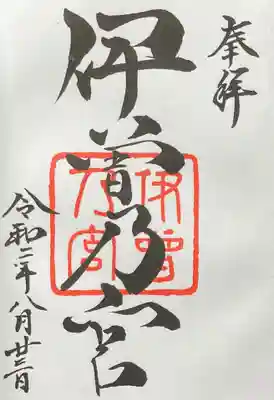 奉拝
伊曽乃宮
伊曽乃宮
令和二年八月廿三日